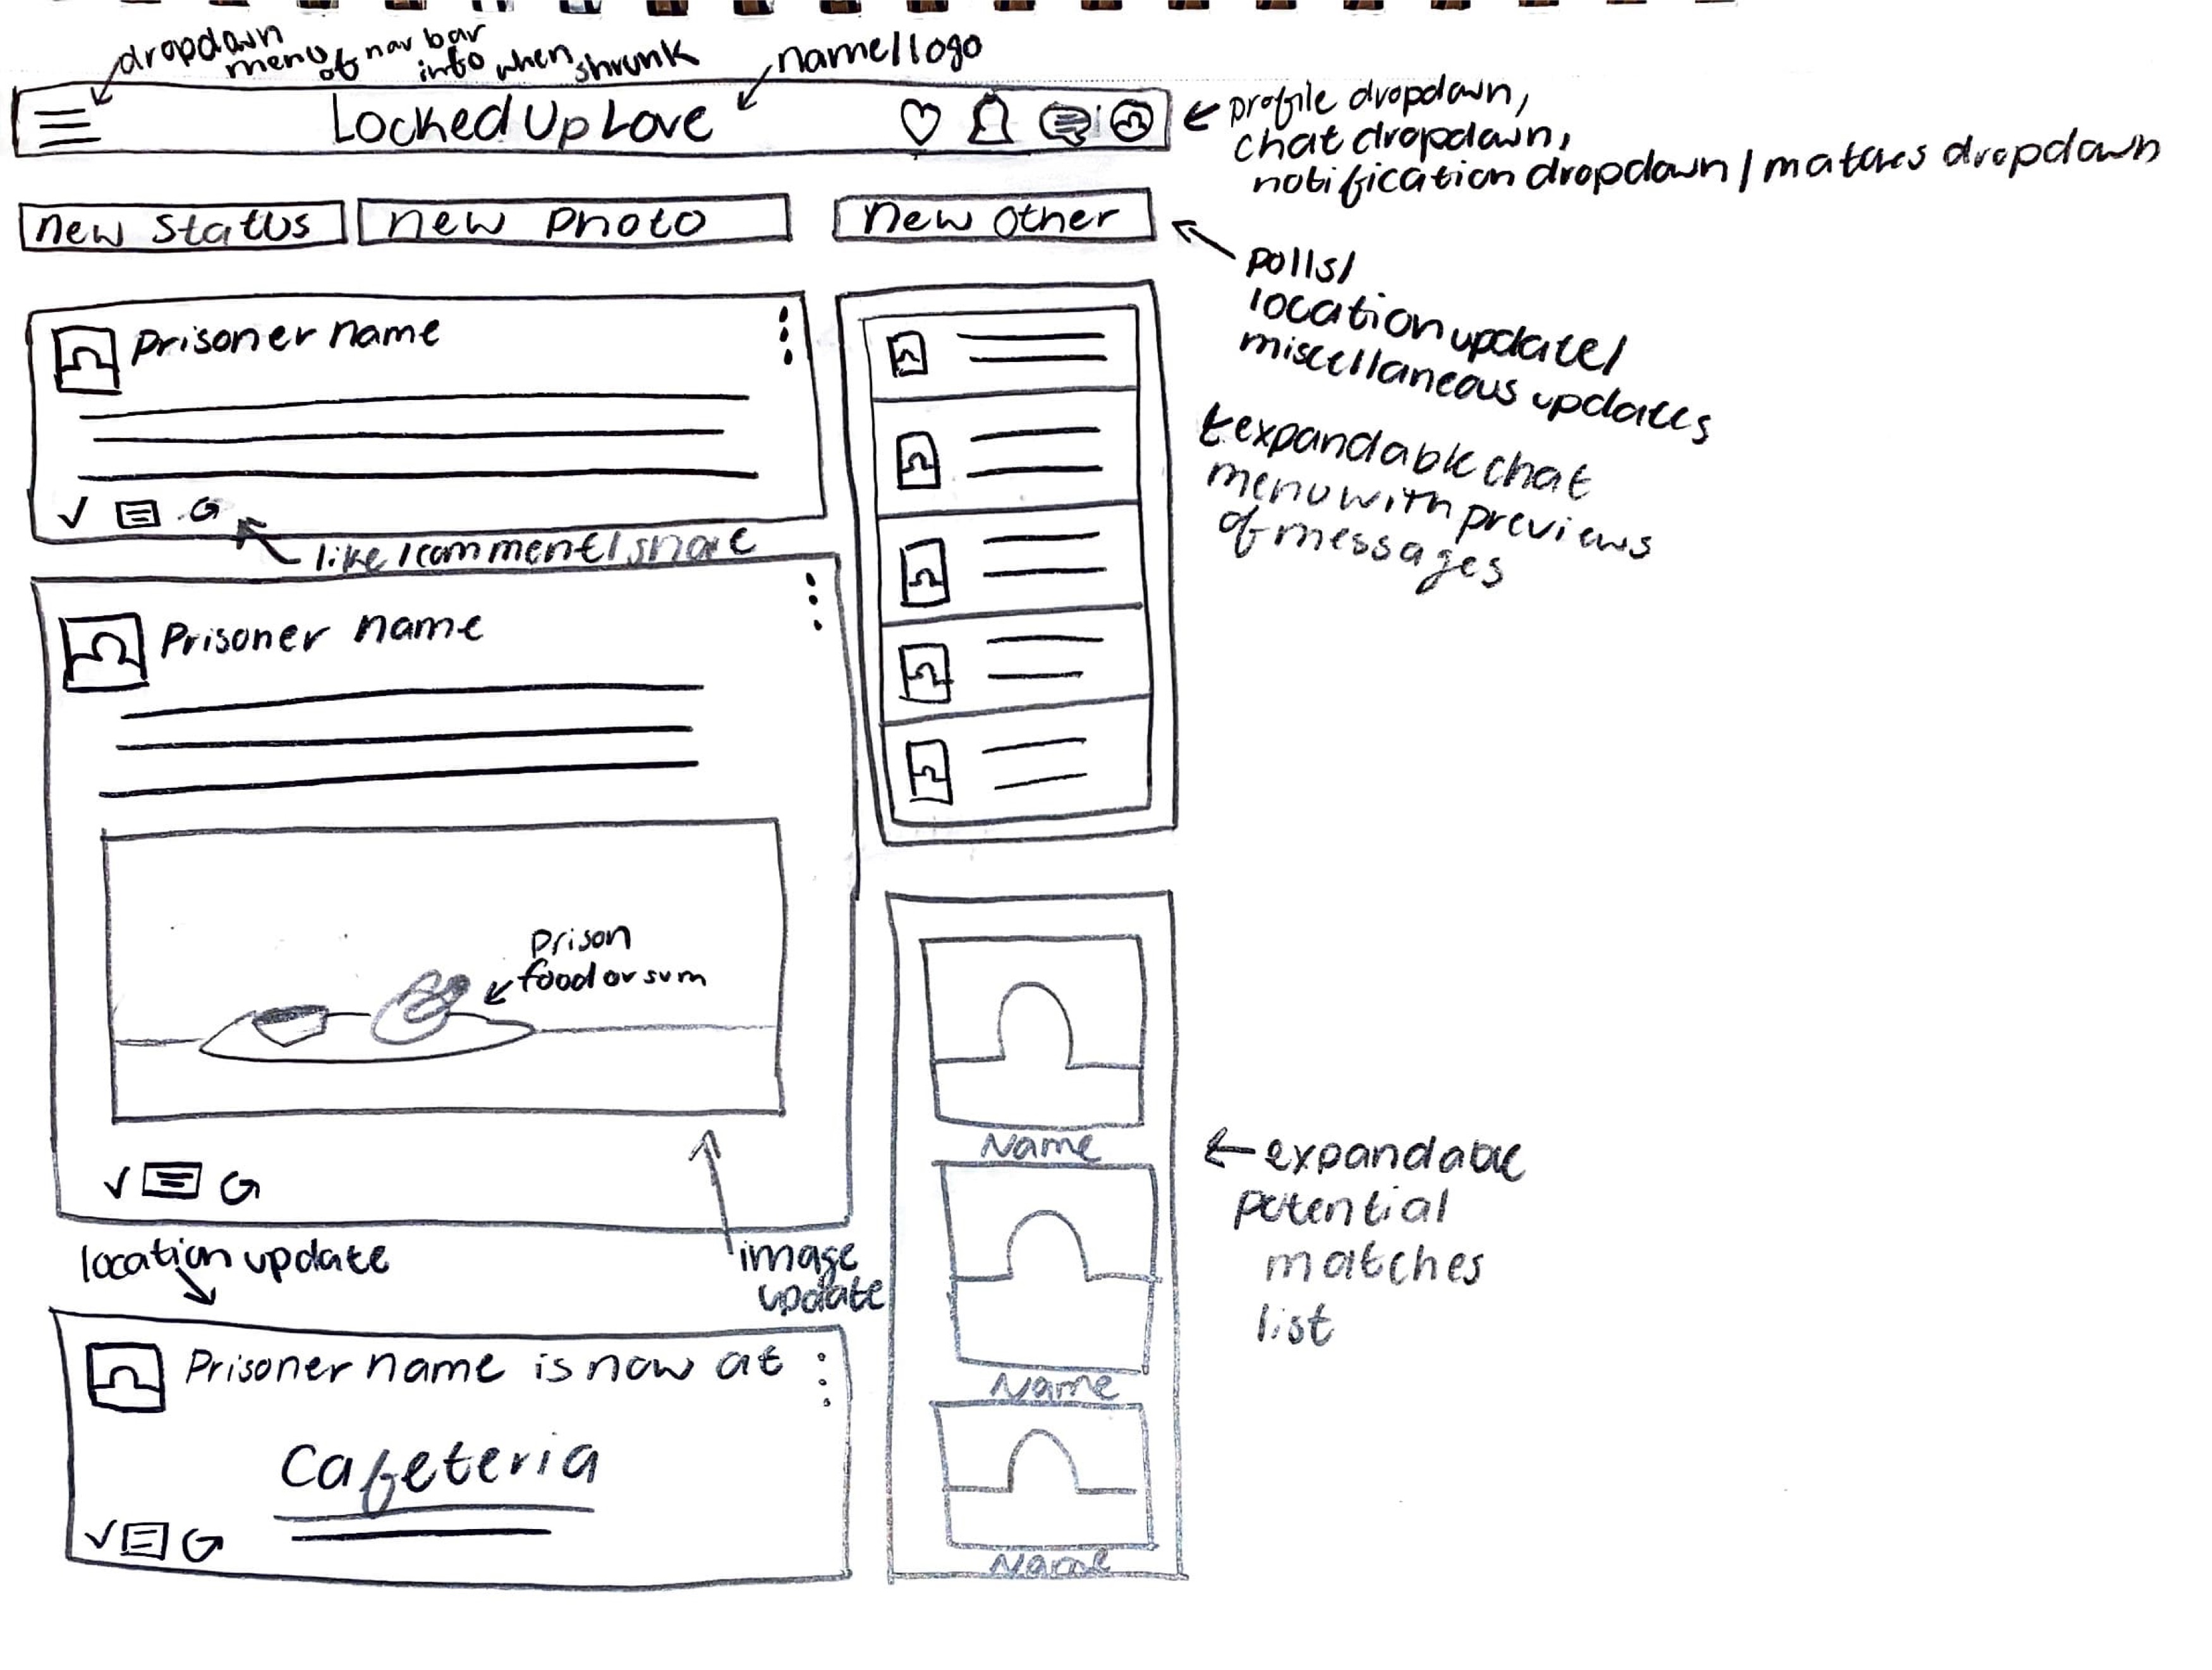 dropdown
menu of nav bar
info when shrunk
name/logo
Locked Up Love
profile dropdown,
chat dropdown,
notification dropdown / matches dropdown
new status
new photo
new other
polls/
location update/
miscellaneous updates
Prisoner name
expandable chat
menu with previews
of messages
like/comment/share
Prisoner name
Prison
food or sum
Name
expandable
potential
matches
list
image
update
location update
Name
Prisoner name is now at
Cafeteria
Name